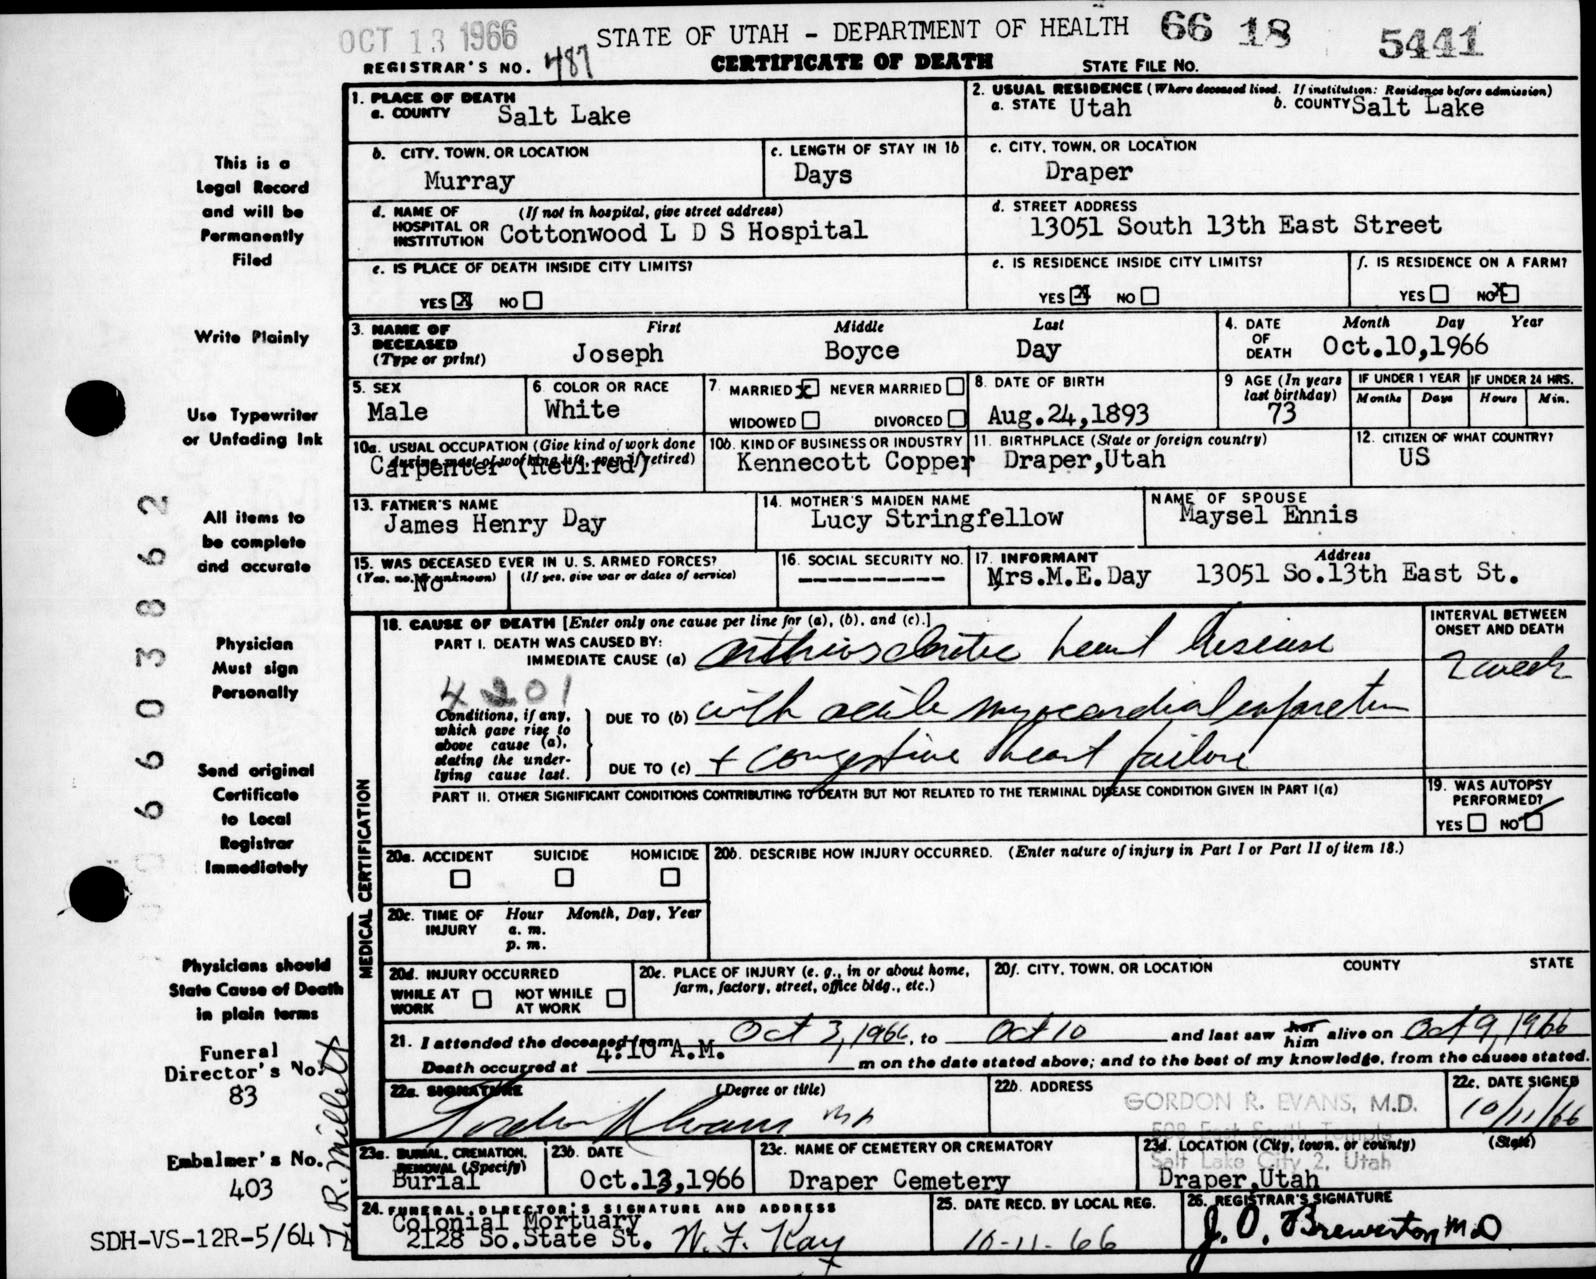 OCT 13 1966 STATE OF UTAH - DEPARTMENT OF HEALTH 66 18 5441
REGISTRAR'S NO. 487 CERTIFICATE OF DEATH STATE FILE NO.
1. PLACE OF DEATH
a. COUNTY Salt Lake
2. USUAL RESIDENCE (Where deceased lived. If institution: Residence before admission)
a. STATE Utah b. COUNTY Salt Lake
b. CITY, TOWN, OR LOCATION
Murray
c. LENGTH OF STAY IN 1b
Days
c. CITY, TOWN, OR LOCATION
Draper
d. NAME OF HOSPITAL OR INSTITUTION (If not in hospital, give street address)
Cottonwood L D S Hospital
d. STREET ADDRESS
13051 South 13th East Street
e. IS PLACE OF DEATH INSIDE CITY LIMITS?
YES X NO
e. IS RESIDENCE INSIDE CITY LIMITS?
YES X NO
f. IS RESIDENCE ON A FARM?
YES NO X
3. NAME OF DECEASED (Type or print)
First Middle Last
Joseph Boyce Day
4. DATE OF DEATH Month Day Year
Oct.10,1966
5. SEX
Male
6 COLOR OR RACE
White
7. MARRIED X NEVER MARRIED
WIDOWED DIVORCED
8. DATE OF BIRTH
Aug.24,1893
9 AGE (In years last birthday)
73
IF UNDER 1 YEAR
Months Days
IF UNDER 24 HRS.
Hours Min.
10a. USUAL OCCUPATION (Give kind of work done during most of working life, even if retired)
Carpenter (Retired)
10b. KIND OF BUSINESS OR INDUSTRY
Kennecott Copper
11. BIRTHPLACE (State or foreign country)
Draper,Utah
12. CITIZEN OF WHAT COUNTRY?
US
13. FATHER'S NAME
James Henry Day
14. MOTHER'S MAIDEN NAME
Lucy Stringfellow
NAME OF SPOUSE
Maysel Ennis
15. WAS DECEASED EVER IN U. S. ARMED FORCES?
(Yes, no, or unknown) (If yes, give war or dates of service)
No
16. SOCIAL SECURITY NO.
-----------
17. INFORMANT Address
Mrs.M.E.Day 13051 So.13th East St.
MEDICAL CERTIFICATION
18. CAUSE OF DEATH [Enter only one cause per line for (a), (b), and (c).]
INTERVAL BETWEEN ONSET AND DEATH
PART I. DEATH WAS CAUSED BY:
IMMEDIATE CAUSE (a) arthiosclerotic heart disease
2 week
4201
Conditions, if any, which gave rise to above cause (a), stating the underlying cause last.
DUE TO (b) with acute myocardial infarction
DUE TO (c) + congestive heart failure
PART II. OTHER SIGNIFICANT CONDITIONS CONTRIBUTING TO DEATH BUT NOT RELATED TO THE TERMINAL DISEASE CONDITION GIVEN IN PART I(a)
19. WAS AUTOPSY PERFORMED?
YES NO
20a. ACCIDENT SUICIDE HOMICIDE
20b. DESCRIBE HOW INJURY OCCURRED. (Enter nature of injury in Part I or Part II of item 18.)
20c. TIME OF INJURY Hour Month, Day, Year
a. m.
p. m.
20d. INJURY OCCURRED
WHILE AT WORK NOT WHILE AT WORK
20e. PLACE OF INJURY (e. g., in or about home, farm, factory, street, office bldg., etc.)
20f. CITY, TOWN, OR LOCATION COUNTY STATE
21. I attended the deceased from Oct 3, 1966, to Oct 10 and last saw her him alive on Oct 9, 1966
Death occurred at 4:10 A.M. m on the date stated above; and to the best of my knowledge, from the causes stated.
22a. SIGNATURE (Degree or title)
Gordon R Evans MD
22b. ADDRESS
GORDON R. EVANS, M.D.
508 East South Temple
Salt Lake City 2, Utah
22c. DATE SIGNED
10/11/66
23a. BURIAL, CREMATION, REMOVAL (Specify)
Burial
23b. DATE
Oct.13,1966
23c. NAME OF CEMETERY OR CREMATORY
Draper Cemetery
23d. LOCATION (City, town, or county) (State)
Draper,Utah
24. FUNERAL DIRECTOR'S SIGNATURE AND ADDRESS
Colonial Mortuary
2128 So.State St. W. F. Kay
25. DATE RECD. BY LOCAL REG.
10-11-66
26. REGISTRAR'S SIGNATURE
J. O. Brewerton MD
This is a
Legal Record
and will be
Permanently
Filed
Write Plainly
Use Typewriter
or Unfading Ink
All items to
be complete
and accurate
Physician
Must sign
Personally
Send original
Certificate
to Local
Registrar
Immediately
Physicians should
State Cause of Death
in plain terms
Funeral
Director's No.
83
Embalmer's No.
403
R. Millett
SDH-VS-12R-5/64
006603862